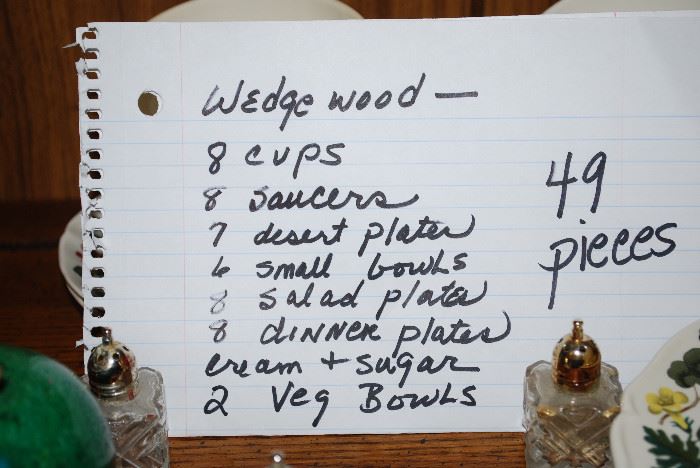 Wedgewood —
8 cups
8 saucers
7 desert plates
6 small bowls
8 salad plates
8 dinner plates
cream + sugar
2 Veg Bowls
49
pieces